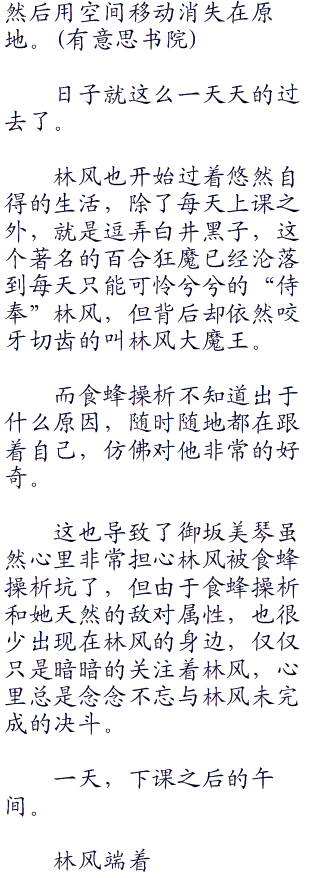 然后用空间移动消失在原
地。(有意思书院)
日子就这么一天天的过
去了。
林风也开始过着悠然自
得的生活，除了每天上课之
外，就是逗弄白井黑子，这
个著名的百合狂魔已经沦落
到每天只能可怜兮兮的“侍
奉”林风，但背后却依然咬
牙切齿的叫林风大魔王。
而食蜂操析不知道出于
什么原因，随时随地都在跟
着自己，仿佛对他非常的好
奇。
这也导致了御坂美琴虽
然心里非常担心林风被食蜂
操析坑了，但由于食蜂操析
和她天然的敌对属性，也很
少出现在林风的身边，仅仅
只是暗暗的关注着林风，心
里总是念念不忘与林风未完
成的决斗。
一天，下课之后的午
间。
林风端着